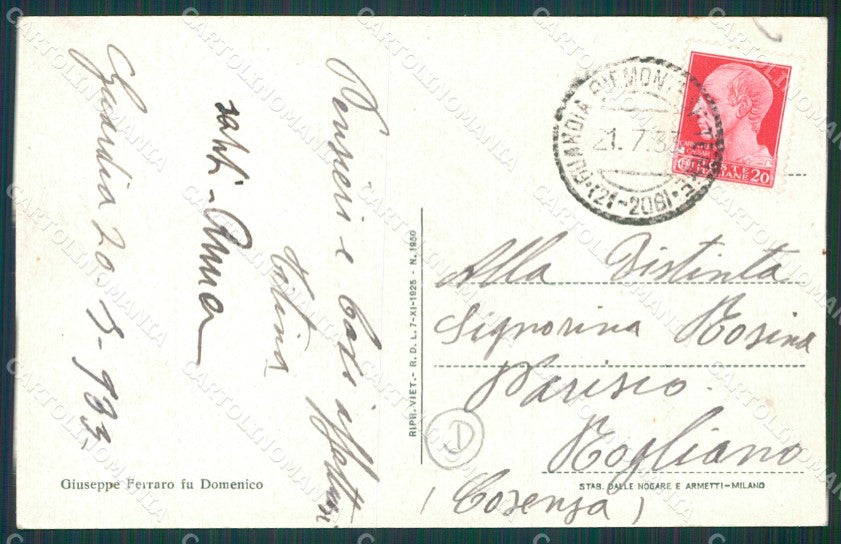 Guardia 20-7-933-
saluti - Anna
Pensieri e baci affettuosi
Giuseppe Ferraro fu Domenico
RIPR. VIET. - R. D. L. 7-XI-1925 - N. 1950
GUARDIA PIEMONTESE
21.7.33
(21-206)
POSTE
ITALIANE 20
Alla Distinta
Signorina Rosina
Parisio
Rogliano
(Cosenza)
D
STAB. DALLE NOGARE E ARMETTI-MILANO
CARTOLINOMANIA